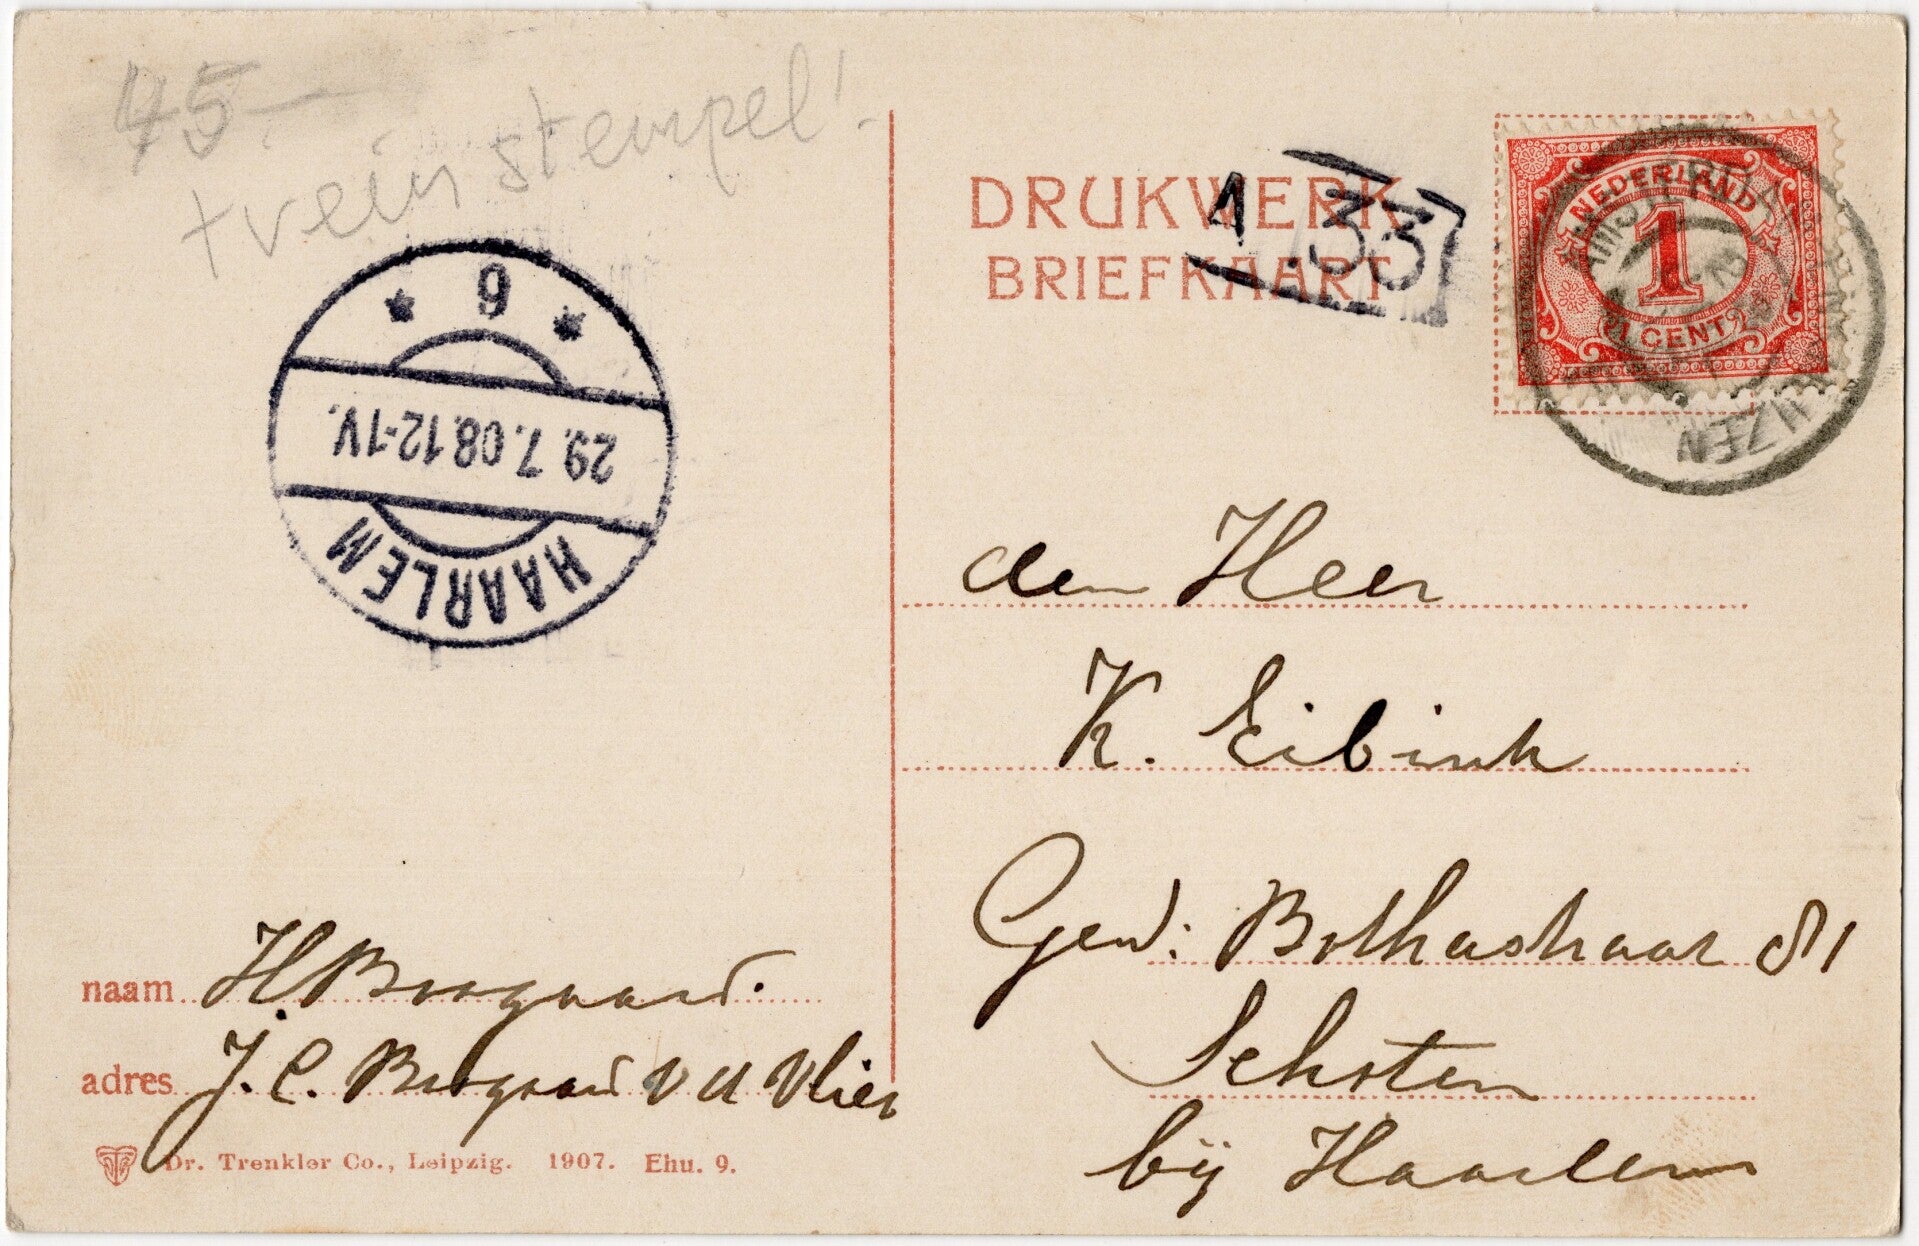 45.-
treinstempel!
6
29.7.08.12-1V.
HAARLEM
DRUKWERK
BRIEFKAART
1 33
NEDERLAND
1
1 CENT
den Heer
K. Eibink
Gew: Bothastraat 81
Schoten
bij Haarlem
naam H Boogaard.
adres J. C. Boogaard v d Vlier
Dr. Trenkler Co., Leipzig. 1907. Ehu. 9.